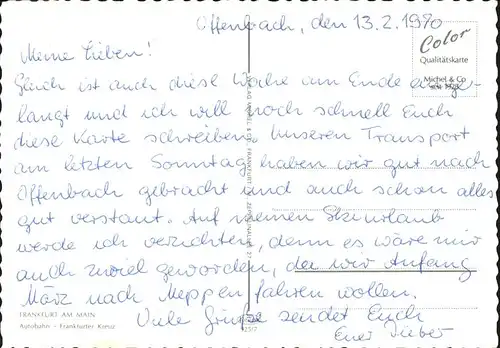 Offenbach, den 13.2.1990
Meine Lieben!
Gleich ist auch diese Woche am Ende ange-
langt und ich will noch schnell Euch
diese Karte schreiben. Unseren Transport
am letzten Sonntag haben wir gut nach
Offenbach gebracht und auch schon alles
gut verstaut. Auf meinen Skiurlaub
werde ich verzichten, denn es wäre mir
auch zuviel geworden, da wir Anfang
März nach Meppen fahren wollen.
Viele Grüße sendet Euch
Euer Dieter
Color
Qualitätskarte
Michel & Co
FRANKFURT AM MAIN
Autobahn - Frankfurter Kreuz